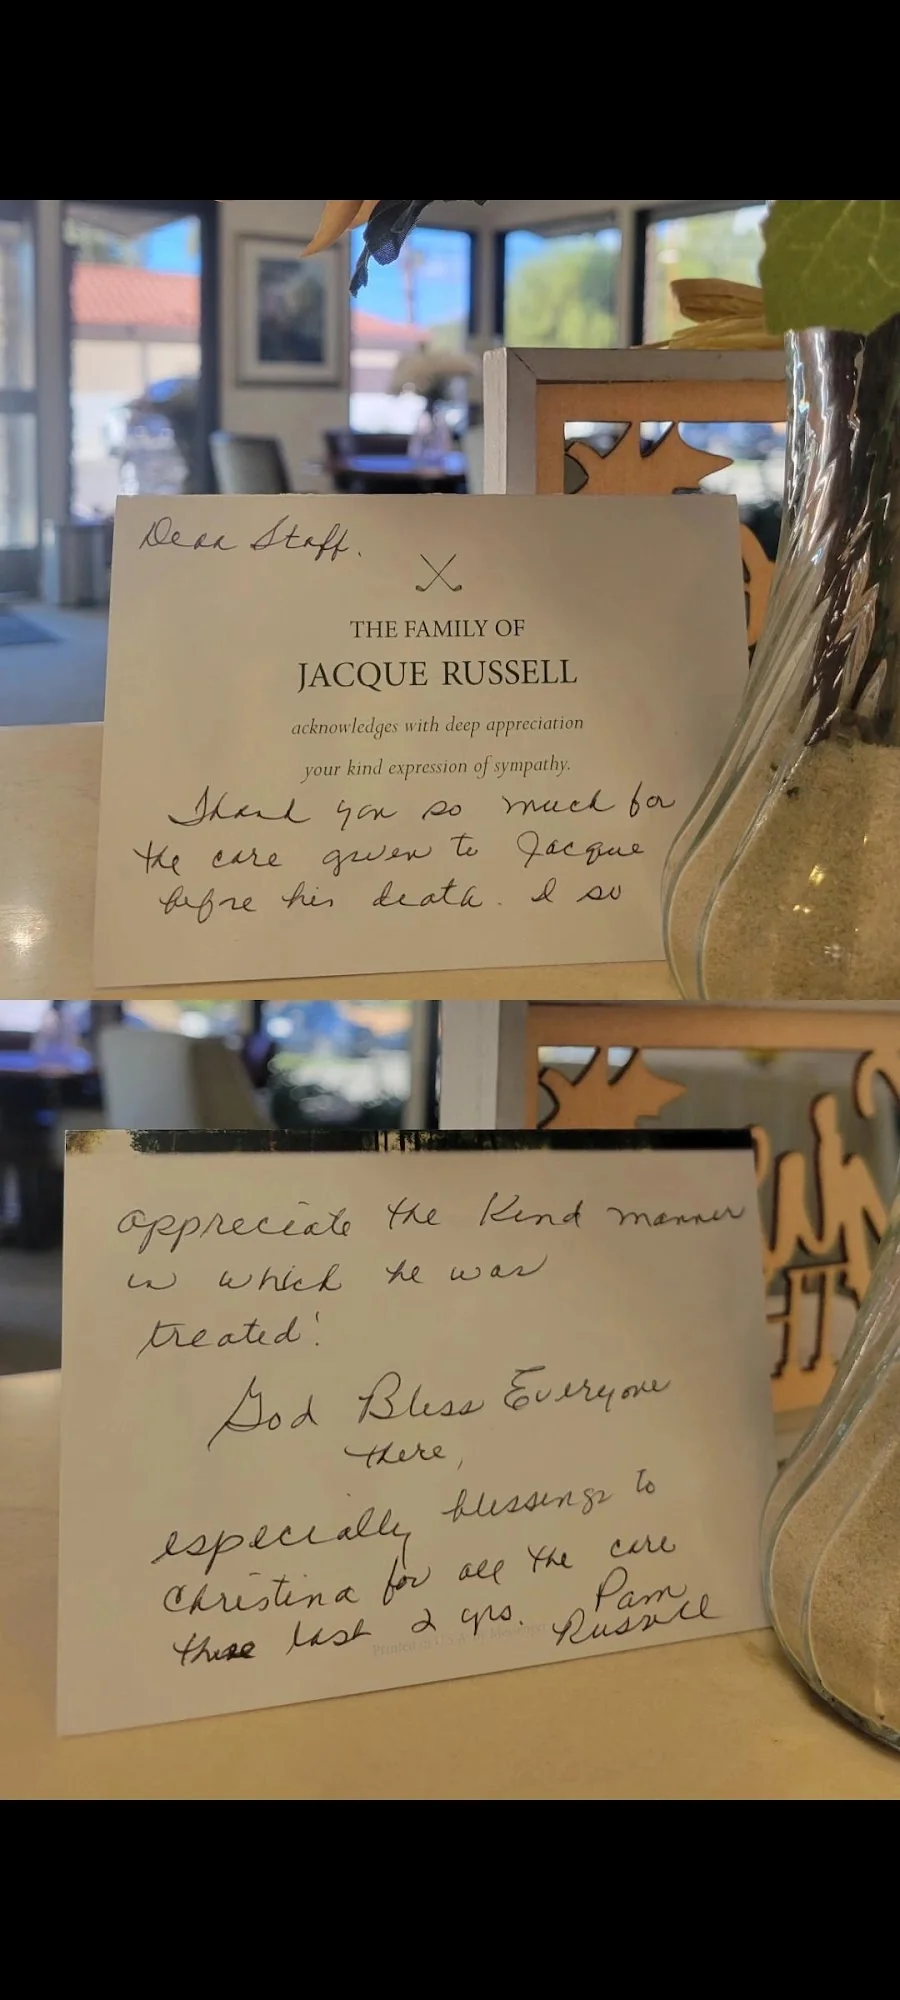 Dear Staff.
THE FAMILY OF
JACQUE RUSSELL
acknowledges with deep appreciation
your kind expression of sympathy.
Thank you so much for
the care given to Jacque
before his death. I so
appreciate the Kind manner
in which he was
treated!
God Bless Everyone
there,
especially blessings to
Christina for all the care
these last 2 yrs. Pam
Russell
Printed in USA by